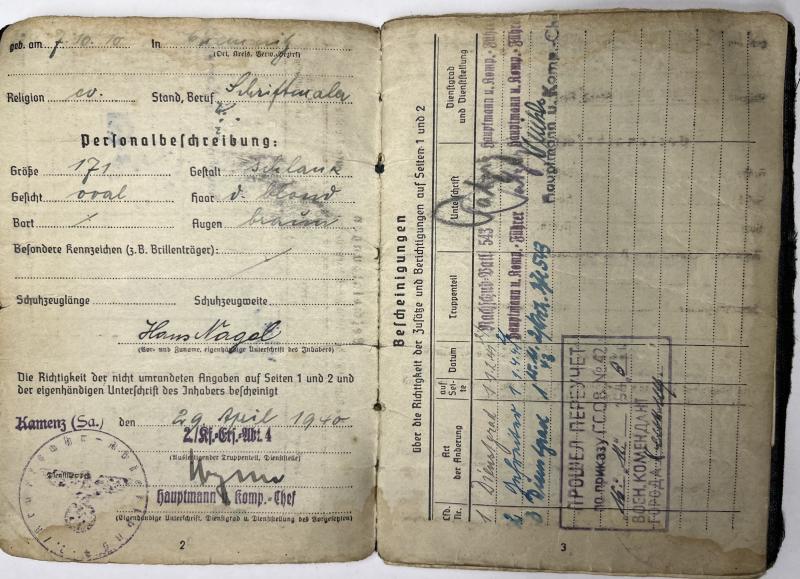 geb. am 7.10.10 in Chemnitz
(Ort, Kreis, Verw.-Bezirk)
Religion ev. Stand, Beruf Schriftmaler
Personalbeschreibung:
Größe 171 Gestalt schlank
Gesicht oval Haar d. blond
Bart / Augen braun
Besondere Kennzeichen (z.B. Brillenträger):
Schuhzeuglänge Schuhzeugweite
Hans Nagel
(Vor- und Zuname, eigenhändige Unterschrift des Inhabers)
Die Richtigkeit der nicht umrandeten Angaben auf Seiten 1 und 2 und
der eigenhändigen Unterschrift des Inhabers bescheinigt
Kamenz (Sa.) den 29 April 1940
2./Kf.-Ers.-Abt. 4
(Ausfertigender Truppenteil, Dienststelle)
Hauptmann u. Komp.-Chef
(Eigenhändige Unterschrift, Dienstgrad u. Dienststellung des Vorgesetzten)
2
Bescheinigungen
über die Richtigkeit der Zusätze und Berichtigungen auf Seiten 1 und 2
Lfd. Nr.
Art der Änderung
auf Seite
Datum
Truppenteil
Unterschrift
Dienstgrad und Dienststellung
1 Dienstgrad
Nachschub-Batl. 543
Hauptmann u. Komp.-Führer
2
Hauptmann u. Komp.-Führer
Hauptmann u. Komp.-Führer
3 Dienstgrad 1
543
Hauptmann u. Komp.-Ch
ПРОШЕЛ ПЕРЕУЧЕТ
по приказу
ВОЕН. КОМЕНДАНТ
ГОРОДА
3